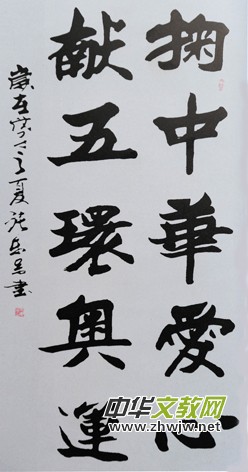 掬中華愛心
献五環奥運
歲在戊子之夏張
書
中华文教网
www.zhwjw.net